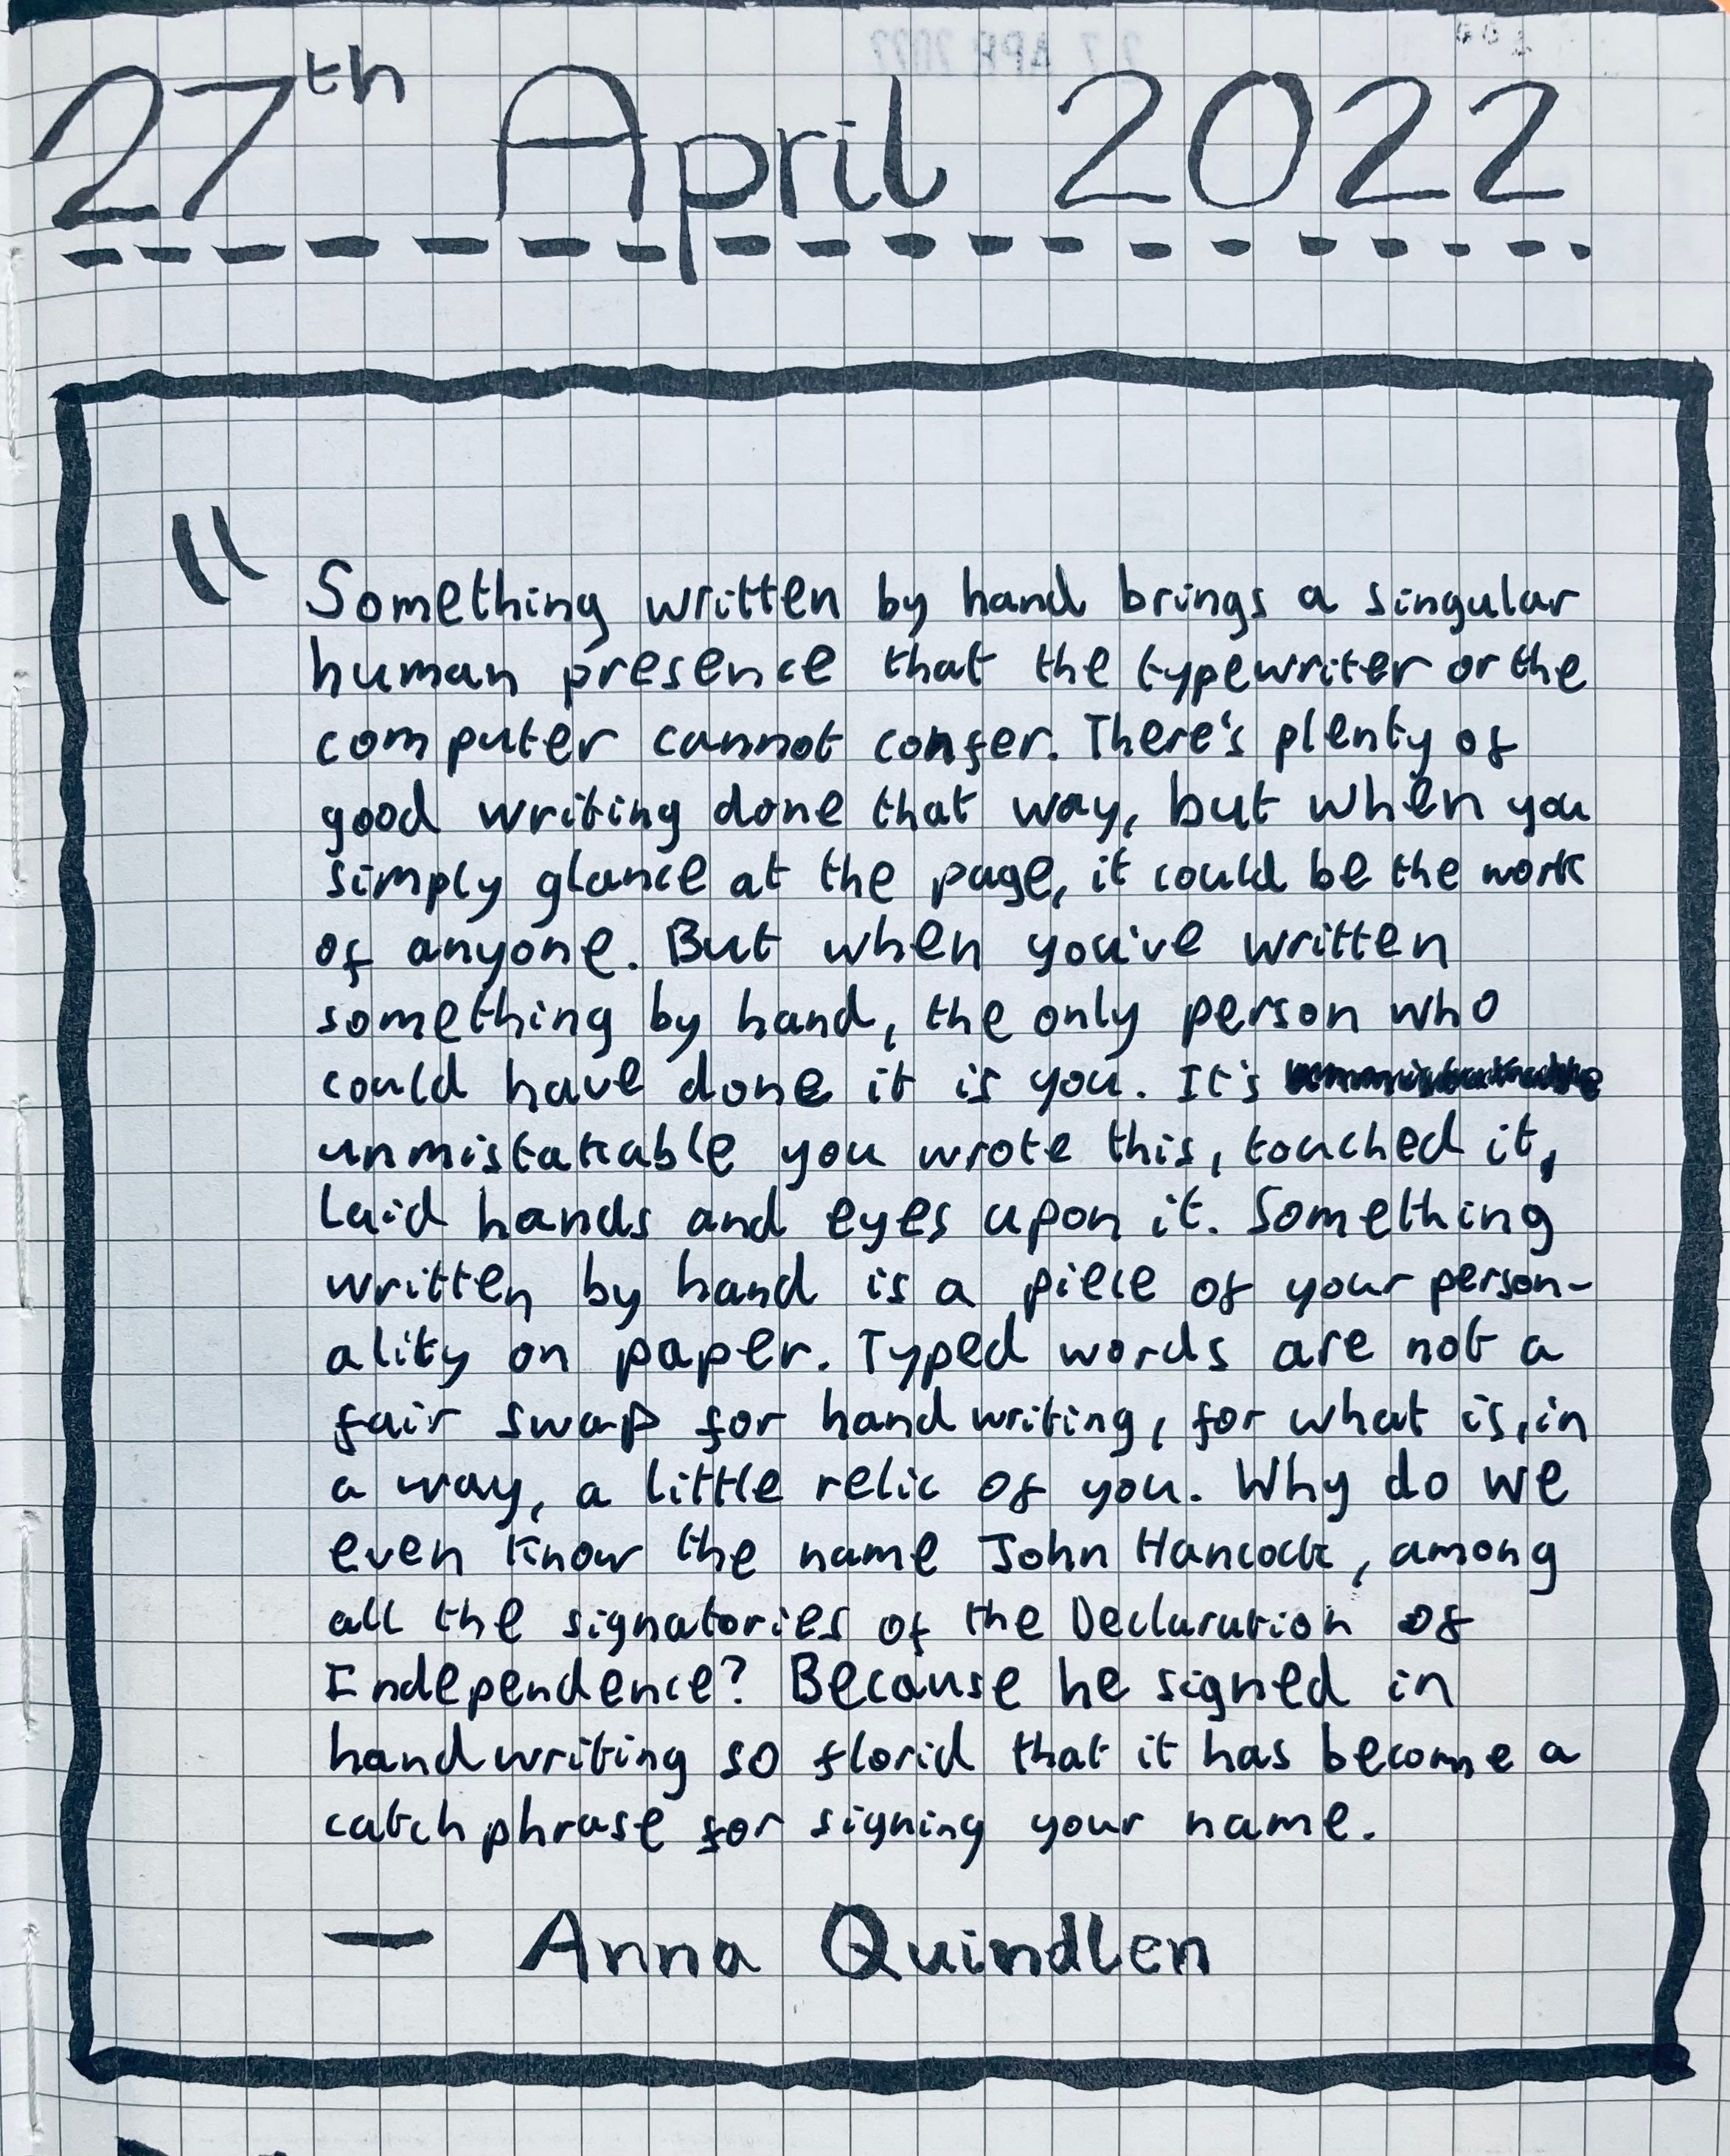 27th April 2022
"
Something written by hand brings a singular
human presence that the typewriter or the
computer cannot confer. There's plenty of
good writing done that way, but when you
simply glance at the page, it could be the work
of anyone. But when you've written
something by hand, the only person who
could have done it is you. It's
unmistakable you wrote this, touched it,
laid hands and eyes upon it. Something
written by hand is a piece of your person-
ality on paper. Typed words are not a
fair swap for handwriting, for what is, in
a way, a little relic of you. Why do we
even know the name John Hancock, among
all the signatories of the Declaration of
Independence? Because he signed in
handwriting so florid that it has become a
catchphrase for signing your name.
— Anna Quindlen